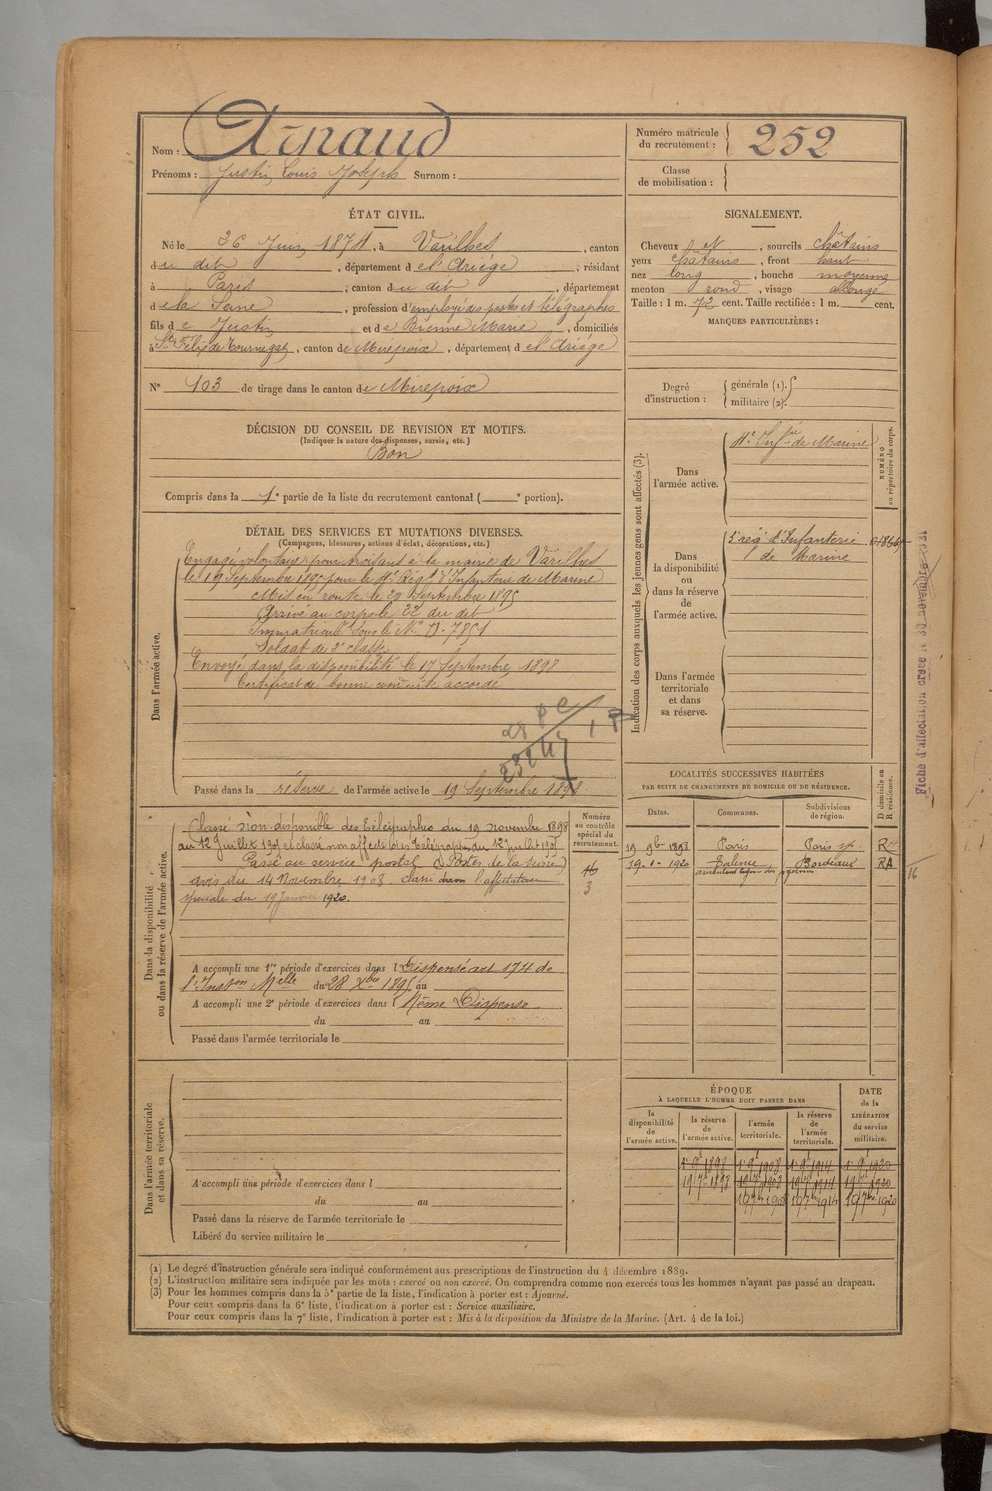 Nom : Arnaud
Prénoms : Justin Louis Joseph Surnom :
Numéro matricule du recrutement : 252
Classe de mobilisation :
ÉTAT CIVIL.
Né le 26 Juin 1874, à Varilhes, canton
du dit, département de l'Ariège, résidant
à Paris, canton du dit, département
de la Seine, profession d'employé des postes et télégraphes
fils de Justin et de Brenne Marie, domiciliés
à St Félix de Tournegat, canton de Mirepoix, département de l'Ariège
N° 103 de tirage dans le canton de Mirepoix
SIGNALEMENT.
Cheveux N, sourcils châtains
yeux châtains, front haut
nez long, bouche moyenne
menton rond, visage allongé
Taille : 1 m. 72 cent. Taille rectifiée : 1 m. cent.
MARQUES PARTICULIÈRES :
Degré d'instruction : générale (1).
militaire (2).
DÉCISION DU CONSEIL DE REVISION ET MOTIFS.
(Indiquer la nature des dispenses, sursis, etc.)
Bon
Compris dans la 1e partie de la liste du recrutement cantonal ( e portion).
DÉTAIL DES SERVICES ET MUTATIONS DIVERSES.
(Campagnes, blessures, actions d'éclat, décorations, etc.)
Dans l'armée active.
Engagé volontaire pour trois ans à la mairie de Varilhes
le 19 Septembre 1895 pour le 4e Régt d'Infanterie de Marine
Mis en route le 20 Septembre 1895
Arrivé au corps le 22 du dit
Immatriculé sous le N° 7851
Soldat de 2e classe
Envoyé dans la disponibilité le 17 Septembre 1898
Certificat de bonne conduite accordé
Passé dans la réserve de l'armée active le 19 Septembre 1898
Indication des corps auxquels les jeunes gens sont affectés (3).
NUMÉRO au répertoire du corps.
Dans l'armée active.
4e Infie de Marine
Dans la disponibilité ou dans la réserve de l'armée active.
5e rég d'Infanterie
de Marine
Dans l'armée territoriale et dans sa réserve.
Fiche d'affectation créée le 30 novembre
LOCALITÉS SUCCESSIVES HABITÉES
PAR SUITE DE CHANGEMENTS DE DOMICILE OU DE RÉSIDENCE.
Dates. Communes. Subdivisions de région. D domicile ou R résidence.
19 9b 1898 Paris Paris R
1920 Talence Bordeaux RA
ambulant
16
Dans la disponibilité ou dans la réserve de l'armée active.
Numéro au contrôle spécial du recrutement.
Classé non-disponible des Télégraphes du 19 novembre 1898
au 12 Juillet et classé non affecté des Télégraphes du 12 juillet
Passé au service postal (Postes de la Seine)
avis du 14 Novembre 1908 classé dans l'affectation
spéciale du 19 Janvier 1920.
3
A accompli une 1re période d'exercices dans l Dispensé art 174 de
l'Inston Melle du 28 Xbre 1895 au
A accompli une 2e période d'exercices dans l Même Dispense
du au
Passé dans l'armée territoriale le
Dans l'armée territoriale et dans sa réserve.
A accompli une période d'exercices dans l
du au
Passé dans la réserve de l'armée territoriale le
Libéré du service militaire le
ÉPOQUE
À LAQUELLE L'HOMME DOIT PASSER DANS
la disponibilité de l'armée active. la réserve de l'armée active. l'armée territoriale. la réserve de l'armée territoriale. DATE de la LIBÉRATION du service militaire.
1898 1908 1914 1920
(1) Le degré d'instruction générale sera indiqué conformément aux prescriptions de l'instruction du 4 décembre 1889.
(2) L'instruction militaire sera indiquée par les mots : exercé ou non exercé. On comprendra comme non exercés tous les hommes n'ayant pas passé au drapeau.
(3) Pour les hommes compris dans la 5e partie de la liste, l'indication à porter est : Ajourné.
Pour ceux compris dans la 6e liste, l'indication à porter est : Service auxiliaire.
Pour ceux compris dans la 7e liste, l'indication à porter est : Mis à la disposition du Ministre de la Marine. (Art. 4 de la loi.)